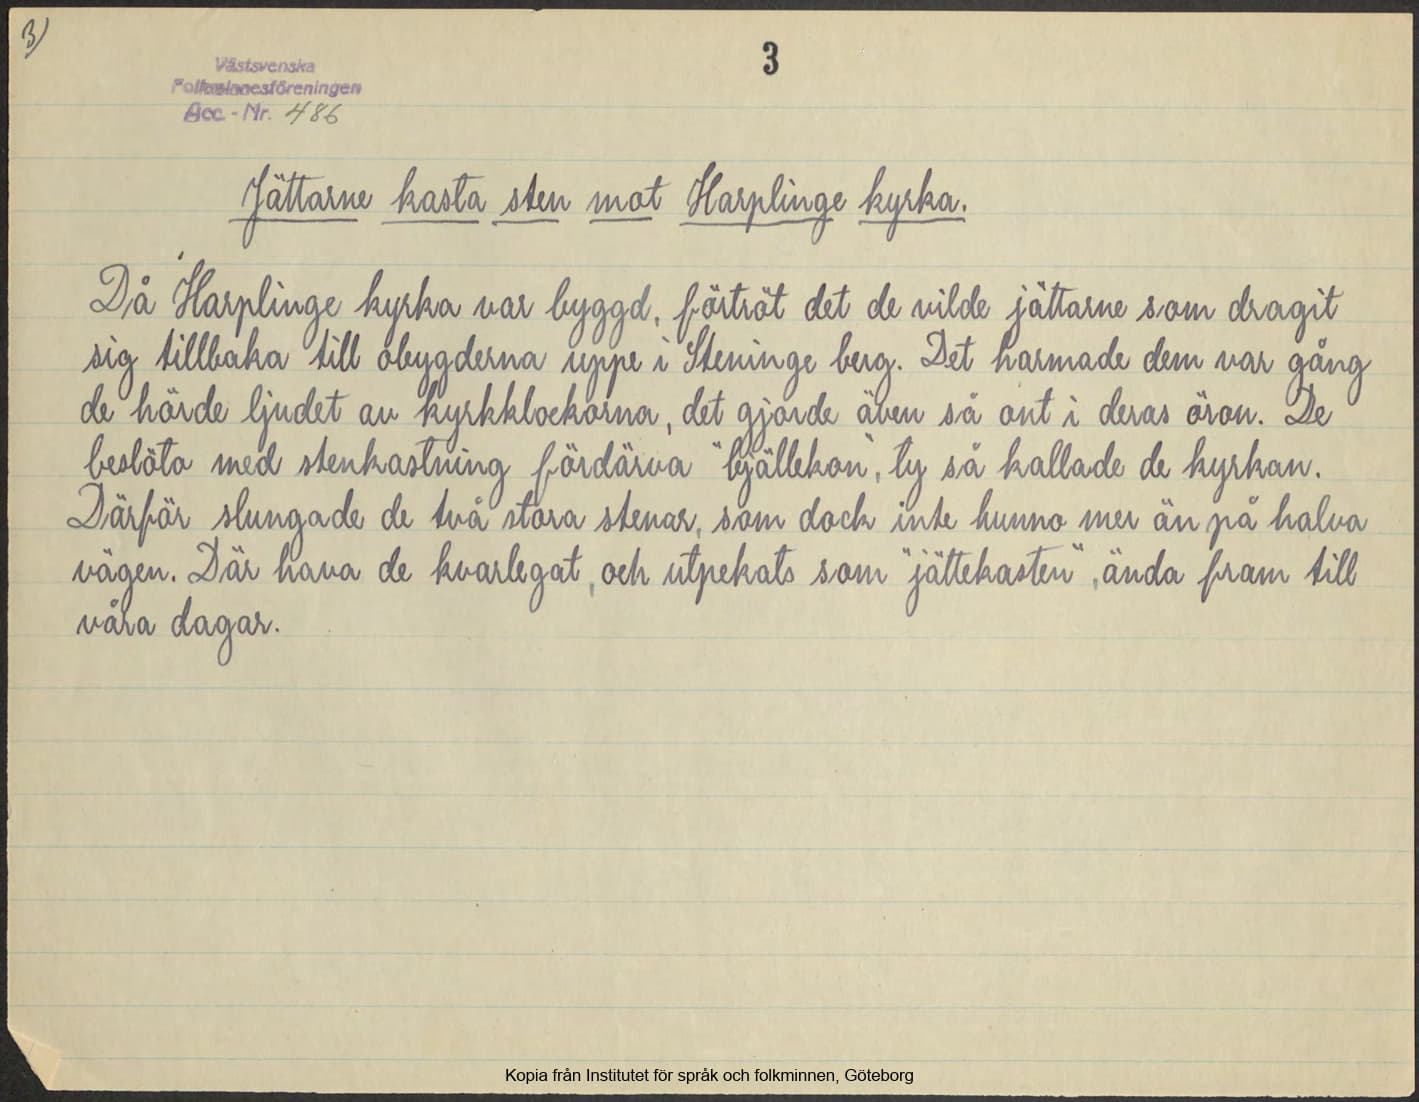 3)
3
Västsvenska
Folkminnesföreningen
Acc. - Nr. 486
Jättarne kasta sten mot Harplinge kyrka.
Då Harplinge kyrka var byggd, förtröt det de vilde jättarne som dragit
sig tillbaka till obygderna uppe i Steninge berg. Det harmade dem var gång
de hörde ljudet av kyrkklockorna, det gjorde även så ont i deras öron. De
beslöto med stenkastning fördärva "bjällekon", ty så kallade de kyrkan.
Därför slungade de två stora stenar, som dock inte hunno mer än på halva
vägen. Där hava de kvarlegat, och utpekats som "jättekasten", ända fram till
våra dagar.
Kopia från Institutet för språk och folkminnen, Göteborg